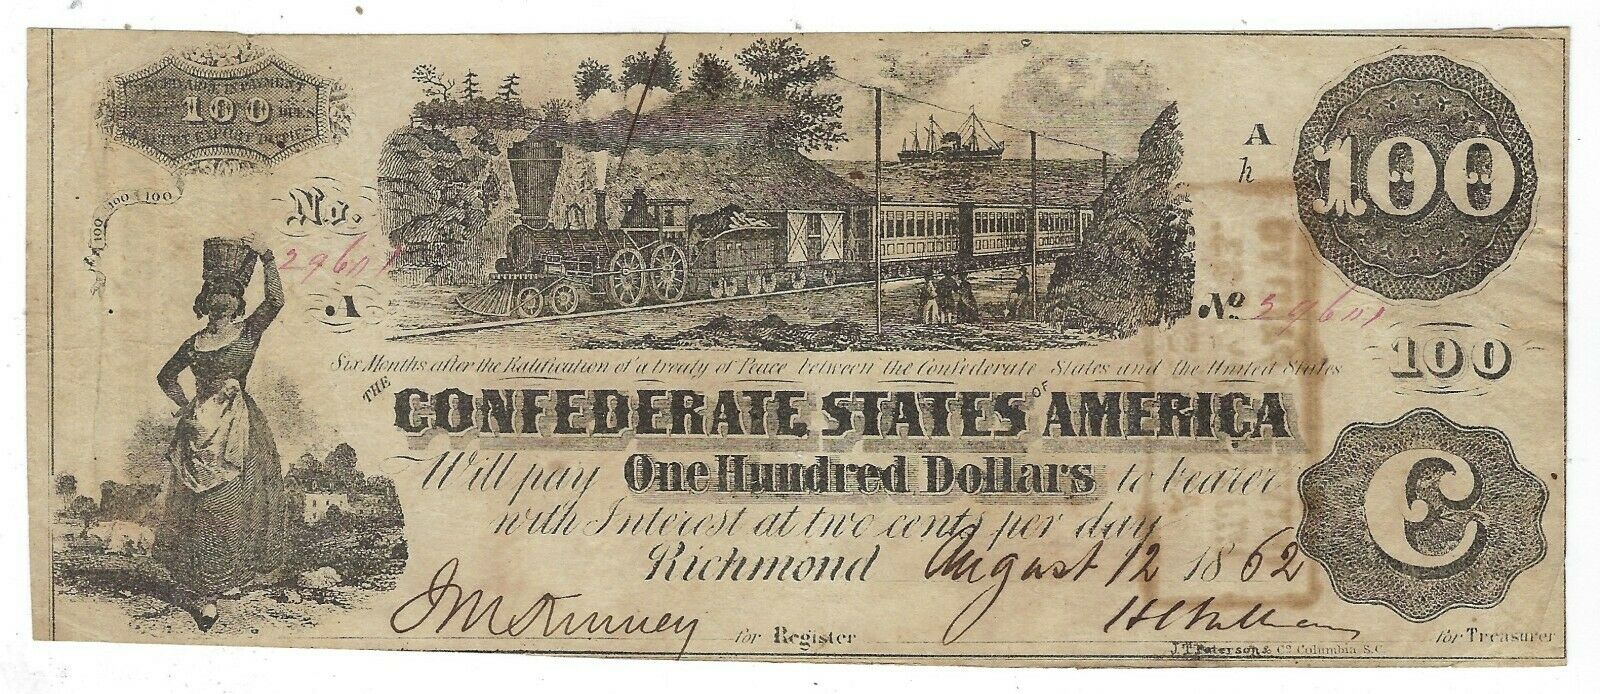 RECEIVABLE IN PAYMENT
100
DUES
100 100 100
No.
A
A
h
100
No
Six Months after the Ratification of a treaty of Peace between the Confederate States and the United States
100
THE CONFEDERATE STATES OF AMERICA
Will pay One Hundred Dollars to bearer
with Interest at two cents per day
C
Richmond August 12 1862
J McKinney for Register
for Treasurer
J.T. Paterson & Co. Columbia S.C.